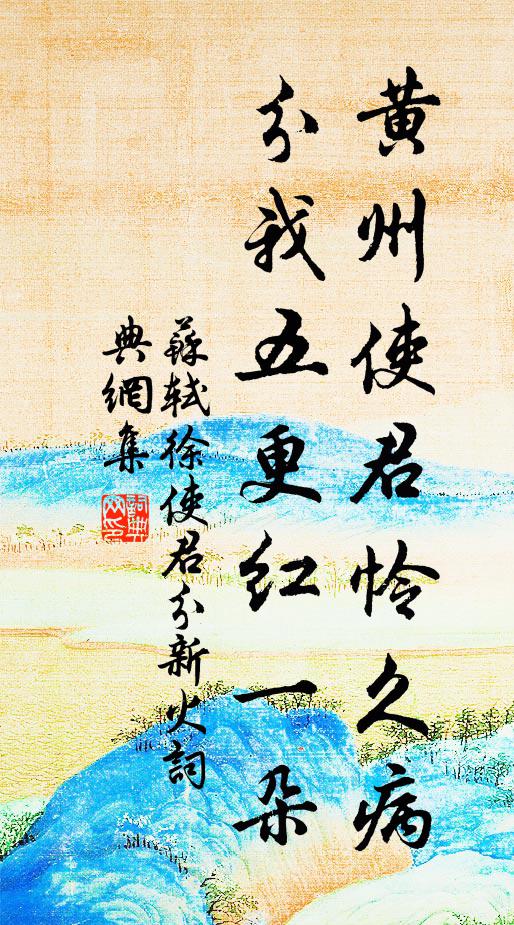 黄州使君怜久病
分我五更红一朵
蘇軾徐使君分新火詞
典網集
詞典